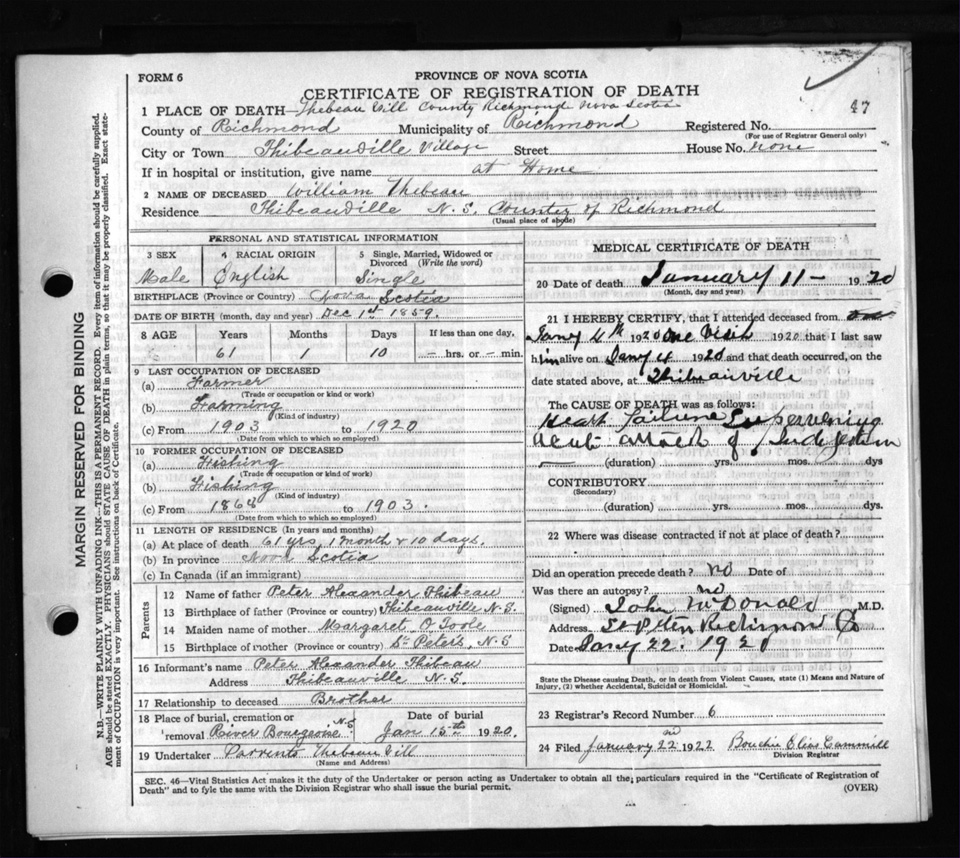 FORM 6
PROVINCE OF NOVA SCOTIA
CERTIFICATE OF REGISTRATION OF DEATH
47
1 PLACE OF DEATH—Thibeau Vill County Richmond Nova Scotia
County of Richmond Municipality of Richmond Registered No.
(For use of Registrar General only)
City or Town Thibeauville Village Street House No. none
If in hospital or institution, give name at Home
2 NAME OF DECEASED William Thibeau
Residence Thibeauville N.S. County of Richmond
(Usual place of abode)
PERSONAL AND STATISTICAL INFORMATION
3 SEX 4 RACIAL ORIGIN 5 Single, Married, Widowed or Divorced (Write the word)
Male English Single
BIRTHPLACE (Province or Country) Nova Scotia
DATE OF BIRTH (month, day and year) Dec 1st 1859.
8 AGE Years Months Days If less than one day,
61 1 10 — hrs. or — min.
9 LAST OCCUPATION OF DECEASED
(a) Farmer
(Trade or occupation or kind or work)
(b) Farming
(Kind of industry)
(c) From 1903 to 1920
(Date from which to which so employed)
10 FORMER OCCUPATION OF DECEASED
(a) Fishing
(Trade or occupation or kind of work)
(b) Fishing
(Kind of industry)
(c) From 1868 to 1903.
(Date from which to which so employed)
11 LENGTH OF RESIDENCE (In years and months)
(a) At place of death 61 yrs, 1 month & 10 days.
(b) In province Nova Scotia
(c) In Canada (if an immigrant)
Parents
12 Name of father Peter Alexander Thibeau
13 Birthplace of father (Province or country) Thibeauville N.S.
14 Maiden name of mother Margaret O Toole
15 Birthplace of mother (Province or country) St Peters, N.S
16 Informant's name Peter Alexander Thibeau
Address Thibeauville N.S.
17 Relationship to deceased Brother
18 Place of burial, cremation or removal River Bourgeois N.S Date of burial Jan 13th 1920.
19 Undertaker Parrents Thibeau Vill
(Name and Address)
MEDICAL CERTIFICATE OF DEATH
20 Date of death January 11 — 1920
(Month, day and year)
21 I HEREBY CERTIFY, that I attended deceased from
Jany 4th 1920 One Visit 1920 that I last saw
him alive on Jany 4 1920 and that death occurred, on the
date stated above, at Thibeauville
The CAUSE OF DEATH was as follows:
Heart failure Supervening
acute attack of Indigestion
— (duration) yrs. mos. dys
CONTRIBUTORY
(Secondary)
(duration) yrs. mos. dys.
22 Where was disease contracted if not at place of death?
Did an operation precede death? no Date of
Was there an autopsy? no
(Signed) John McDonald M.D.
Address St Peters Richmond
Date Jany 22. 1920
State the Disease causing Death, or in death from Violent Causes, state (1) Means and Nature of Injury, (2) whether Accidental, Suicidal or Homicidal.
23 Registrar's Record Number 6
24 Filed January 22nd 1922
Division Registrar
SEC. 46—Vital Statistics Act makes it the duty of the Undertaker or person acting as Undertaker to obtain all the particulars required in the "Certificate of Registration of
Death" and to fyle the same with the Division Registrar who shall issue the burial permit. (OVER)
MARGIN RESERVED FOR BINDING
N.B.—WRITE PLAINLY WITH UNFADING INK—THIS IS A PERMANENT RECORD. Every item of information should be carefully supplied.
AGE should be stated EXACTLY. PHYSICIANS should STATE CAUSE OF DEATH in plain terms, so that it may be properly classified. Exact state-
ment of OCCUPATION is very important. See instructions on back of Certificate.